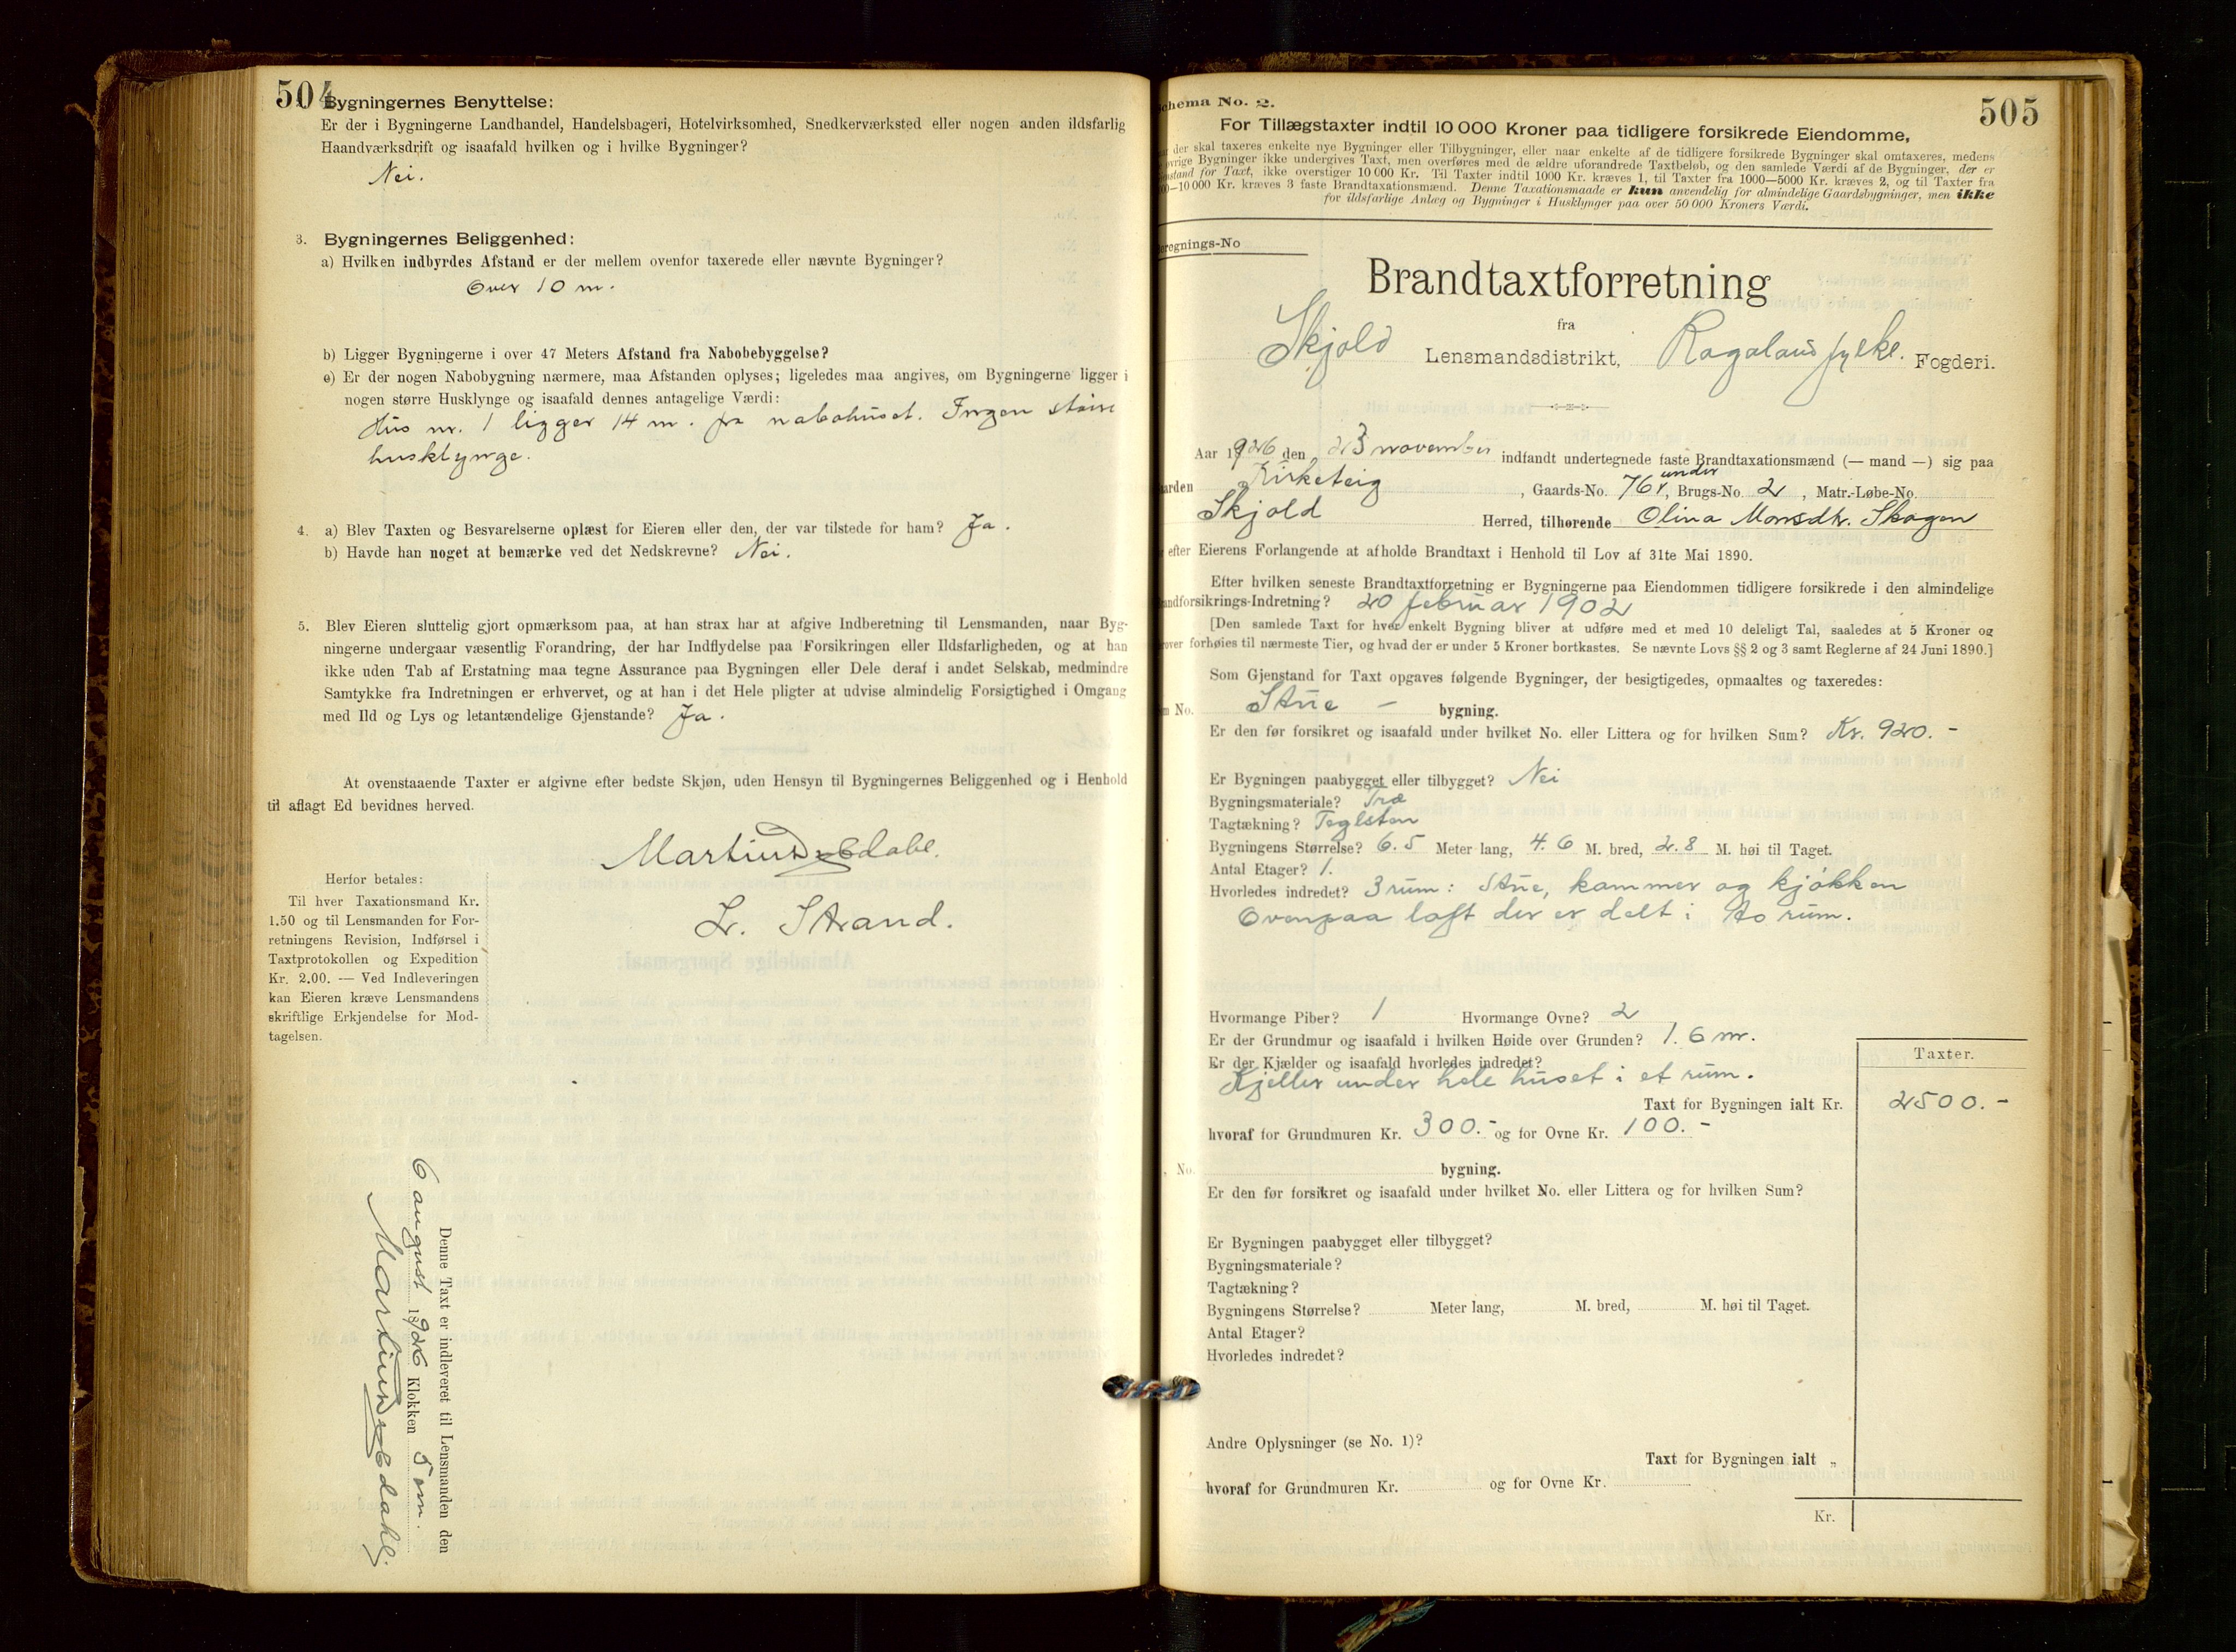 504
Bygningernes Benyttelse:
Er der i Bygningerne Landhandel, Handelsbageri, Hotelvirksomhed, Snedkerværksted eller nogen anden ildsfarlig
Haandværksdrift og isaafald hvilken og i hvilke Bygninger?
Nei.
3. Bygningernes Beliggenhed:
a) Hvilken indbyrdes Afstand er der mellem ovenfor taxerede eller nævnte Bygninger?
Over 10 m.
b) Ligger Bygningerne i over 47 Meters Afstand fra Nabobebyggelse?
c) Er der nogen Nabobygning nærmere, maa Afstanden oplyses; ligeledes maa angives, om Bygningerne ligger i
nogen større Husklynge og isaafald dennes antagelige Værdi:
Hus nr. 1 ligger 14 m. fra nabohuset. Ingen større
husklynge.
4. a) Blev Taxten og Besvarelserne oplæst for Eieren eller den, der var tilstede for ham? Ja.
b) Havde han noget at bemærke ved det Nedskrevne? Nei.
5. Blev Eieren sluttelig gjort opmærksom paa, at han strax har at afgive Indberetning til Lensmanden, naar Byg-
ningerne undergaar væsentlig Forandring, der har Indflydelse paa Forsikringen eller Ildsfarligheden, og at han
ikke uden Tab af Erstatning maa tegne Assurance paa Bygningen eller Dele deraf i andet Selskab, medmindre
Samtykke fra Indretningen er erhvervet, og at han i det Hele pligter at udvise almindelig Forsigtighed i Omgang
med Ild og Lys og letantændelige Gjenstande? Ja.
At ovenstaaende Taxter er afgivne efter bedste Skjøn, uden Hensyn til Bygningernes Beliggenhed og i Henhold
til aflagt Ed bevidnes herved.
L. Strand.
Herfor betales:
Til hver Taxationsmand Kr.
1.50 og til Lensmanden for For-
retningens Revision, Indførsel i
Taxtprotokollen og Expedition
Kr. 2.00. — Ved Indleveringen
kan Eieren kræve Lensmandens
skriftlige Erkjendelse for Mod-
tagelsen.
Denne Taxt er indleveret til Lensmanden den
6 august 1926 Klokken 5 em.
505
Schema No. 2.
For Tillægstaxter indtil 10 000 Kroner paa tidligere forsikrede Eiendomme,
der skal taxeres enkelte nye Bygninger eller Tilbygninger, eller naar enkelte af de tidligere forsikrede Bygninger skal omtaxeres, medens
øvrige Bygninger ikke undergives Taxt, men overføres med de ældre uforandrede Taxtbeløb, og den samlede Værdi af de Bygninger, der er
Gjenstand for Taxt, ikke overstiger 10 000 Kr. Til Taxter indtil 1000 Kr. kræves 1, til Taxter fra 1000—5000 Kr. kræves 2, og til Taxter fra
—10 000 Kr. kræves 3 faste Brandtaxationsmænd. Denne Taxationsmaade er kun anvendelig for almindelige Gaardsbygninger, men ikke
for ildsfarlige Anlæg og Bygninger i Husklynger paa over 50 000 Kroners Værdi.
Beregnings-No
Brandtaxtforretning
fra
Skjold Lensmandsdistrikt, Rogaland fylke. Fogderi.
Aar 1926 den 23 november indfandt undertegnede faste Brandtaxationsmænd (— mand —) sig paa
Gaarden Kirketeig, Gaards-No. 76, under Brugs-No. 2, Matr.-Løbe-No.
Skjold Herred, tilhørende Olina Monsdtr. Skogen
efter Eierens Forlangende at afholde Brandtaxt i Henhold til Lov af 31te Mai 1890.
Efter hvilken seneste Brandtaxtforretning er Bygningerne paa Eiendommen tidligere forsikrede i den almindelige
Brandforsikrings-Indretning? 20 februar 1902
[Den samlede Taxt for hver enkelt Bygning bliver at udføre med et med 10 deleligt Tal, saaledes at 5 Kroner og
derover forhøies til nærmeste Tier, og hvad der er under 5 Kroner bortkastes. Se nævnte Lovs §§ 2 og 3 samt Reglerne af 24 Juni 1890.]
Som Gjenstand for Taxt opgaves følgende Bygninger, der besigtigedes, opmaaltes og taxeredes:
No. Stue - bygning.
Er den før forsikret og isaafald under hvilket No. eller Littera og for hvilken Sum? Kr. 920.-
Er Bygningen paabygget eller tilbygget? Nei
Bygningsmateriale? Træ
Tagtækning? Teglsten
Bygningens Størrelse? 6.5 Meter lang, 4.6 M. bred, 2.8 M. høi til Taget.
Antal Etager? 1.
Hvorledes indredet? 3 rum: Stue, kammer og kjøkken
Ovenpaa loft der er delt i to rum.
Hvormange Piber? 1 Hvormange Ovne? 2
Er der Grundmur og isaafald i hvilken Høide over Grunden? 1.6 m.
Er der Kjælder og isaafald hvorledes indredet?
Kjeller under hele huset i et rum.
Taxter.
Taxt for Bygningen ialt Kr. 2500.-
hvoraf for Grundmuren Kr. 300.- og for Ovne Kr. 100.-
No. bygning.
Er den før forsikret og isaafald under hvilket No. eller Littera og for hvilken Sum?
Er Bygningen paabygget eller tilbygget?
Bygningsmateriale?
Tagtækning?
Bygningens Størrelse? Meter lang, M. bred, M. høi til Taget.
Antal Etager?
Hvorledes indredet?
Andre Oplysninger (se No. 1)?
Taxt for Bygningen ialt „
hvoraf for Grundmuren Kr. og for Ovne Kr.
Kr.